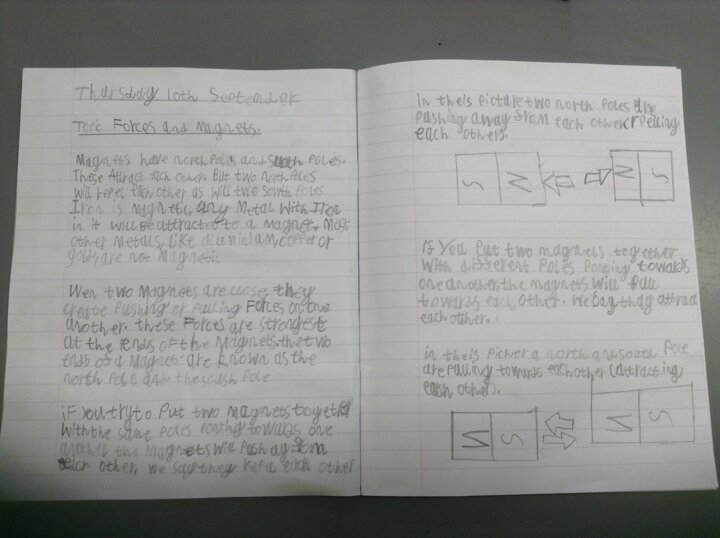 Thursday 10th September
Topic Forces and Magnets.
Magnets have north Poles and South Poles.
These Attract each other. But two north Poles
will repel each other as will two South Poles
Iron is magnetic, any Metal with Iron
in it will be attracted to a magnet. Most
other metals, like aluminium, copper or
gold, are not Magnetic
Wen two Magnets are close, they
create Pushing or Pulling Forces on one
another. these Forces are strongest
At the ends of the Magnets. the two
ends of a Magnet are known as the
north Pole and the south Pole
iF You try to Put two magnets together
with the same Poles Ponting towards one
another the Magnets will Push away from
each other. we say they repel each other
in theis Picture two north Poles are
Pushing away from each other (repelling
each others.
S N N S
If You Put two magnets together
with different Poles Ponting towards
one another, the magnets will Pull
towards each other. We say they attract
each other.
in theis Picher a north and south Pole
are Pulling towards each other (attracting
each other).
N S N S